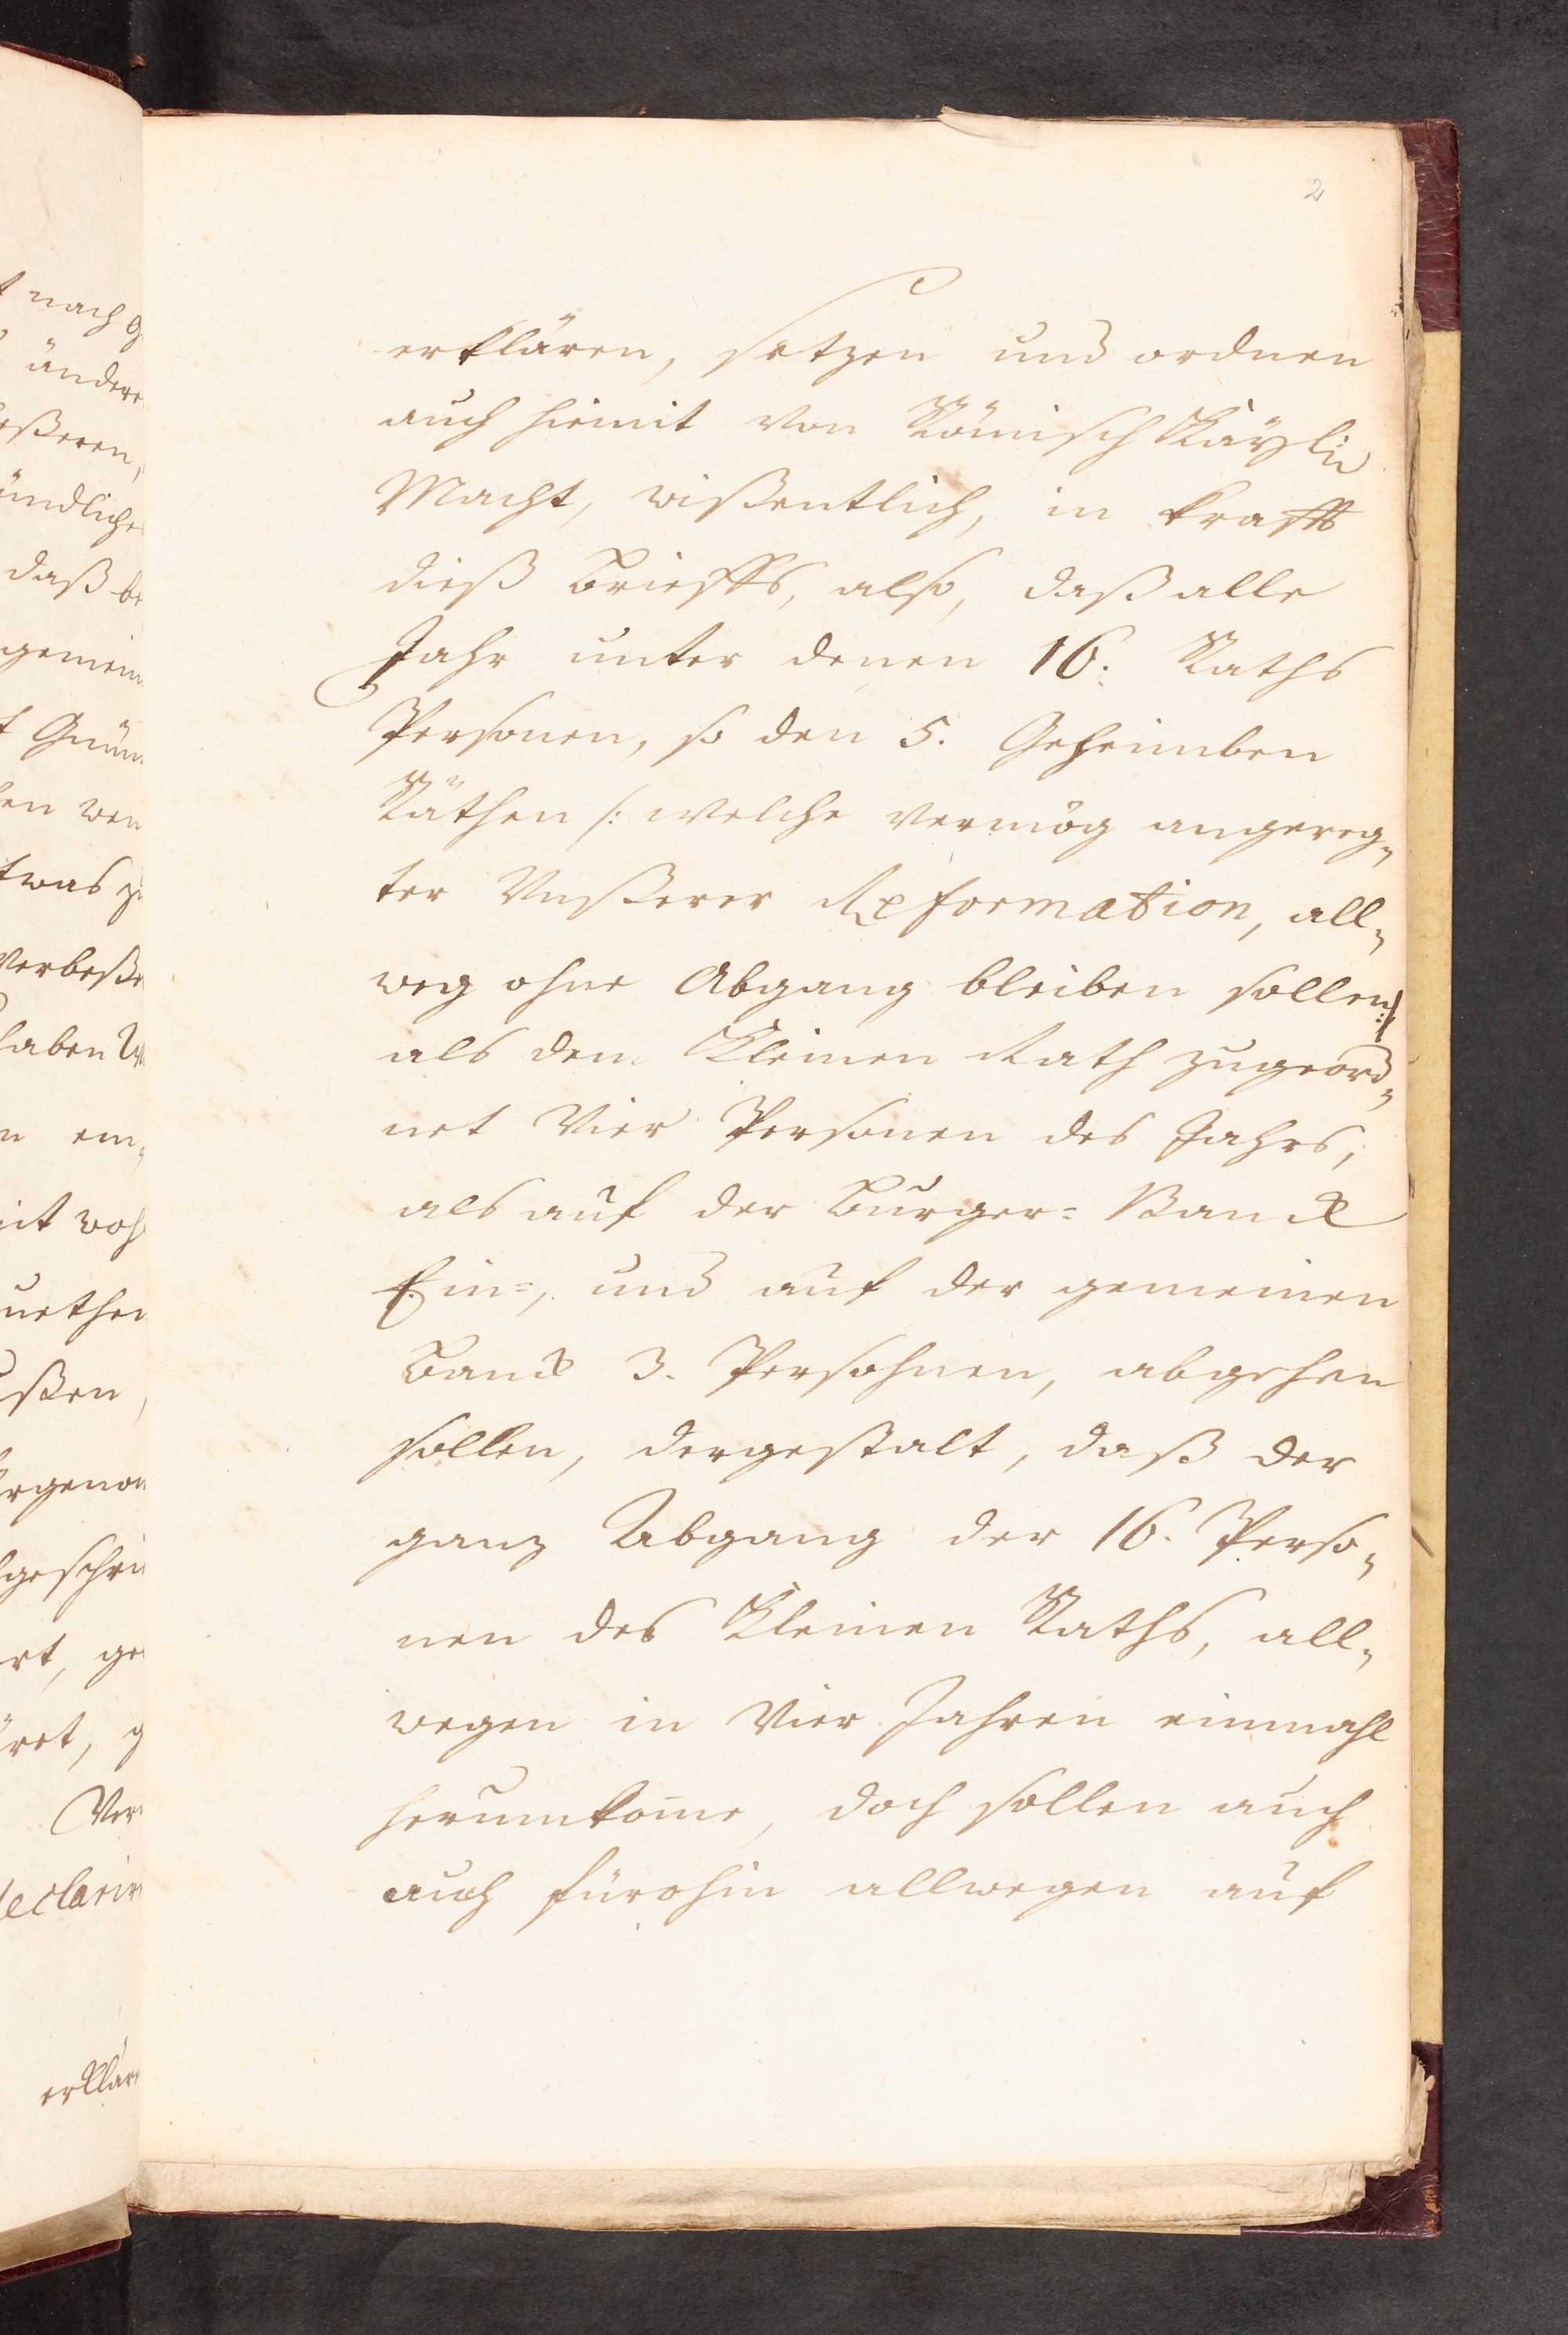 2
erklären, setzen und ordnen
auch hiemit von Römisch Käyßl:r
Macht, wißentlich, in krafft
dieß Brieffs, also, daß alle
Jahr unter denen 16. Raths
Personen, so den 5. Geheimben
Räthen /: welche vermög angereg„
ter Unßerer Reformation, all„
weg ohne Abgang bleiben sollen :/
als dem Kleinen Rath zugeord„
net Vier Personen des Jahrs,
als auf der Burger= Banck
Ein=, und auf der gemeinen
Banck 3. Persohnen, abgehen
sollen, dergestalt, daß der
ganz Abgang der 16. Perso„
nen des Kleinen Raths, all„
wegen in Vier Jahren einmahl
herumkom̄e, doch sollen auch
auch fürohin allwegen auf